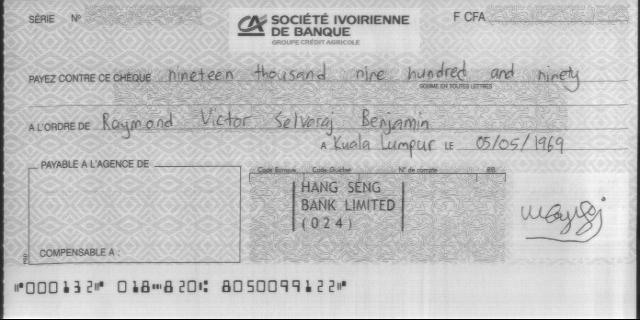 SÉRIE N° F CFA
CA SOCIÉTÉ IVOIRIENNE
DE BANQUE
GROUPE CRÉDIT AGRICOLE
PAYEZ CONTRE CE CHÈQUE nineteen thousand nine hundred and ninety
SOMME EN TOUTES LETTRES
A L'ORDRE DE Raymond Victor Selvaraj Benjamin
A Kuala Lumpur LE 05/05/1969
PAYABLE A L'AGENCE DE
Code Banque Code Guichet N° de compte RIB
HANG SENG
BANK LIMITED
(024)
COMPENSABLE A :
⑈000132⑈ 018⑉820⑆ 8050099122⑈